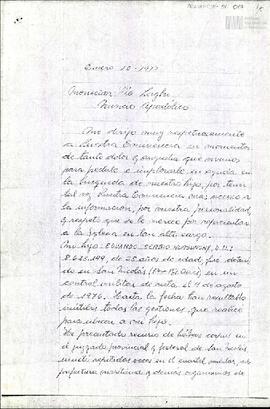 Enero 10 - 1977
Monseñor Pío Laghi
Nuncio Apostólico
Me dirijo muy respetuosamente
a Vuestra Eminencia en momentos
de tanto dolor y angustia que vivimos
para pedirle e implorarle su ayuda en
la búsqueda de nuestro hijo, por
Vuestra Eminencia mas acceso a
la información, por vuestra personalidad
y respeto que se le merece por representar
a la Iglesia en tan alto cargo.
Mi hijo EDUARDO SERGIO D.N.I.
de 25 años de edad, fue
en San Nicolás en un
control militar de ruta el 14 de agosto
de 1976. Hasta la fecha han resultado
inútiles todas las gestiones que realicé
para ubicar a mi hijo.
He presentado recurso de habeas corpus en
el juzgado provincial y federal de San Nicolás
repetidas veces en el cuartel militar,
prefectura marítima y demás organismos de